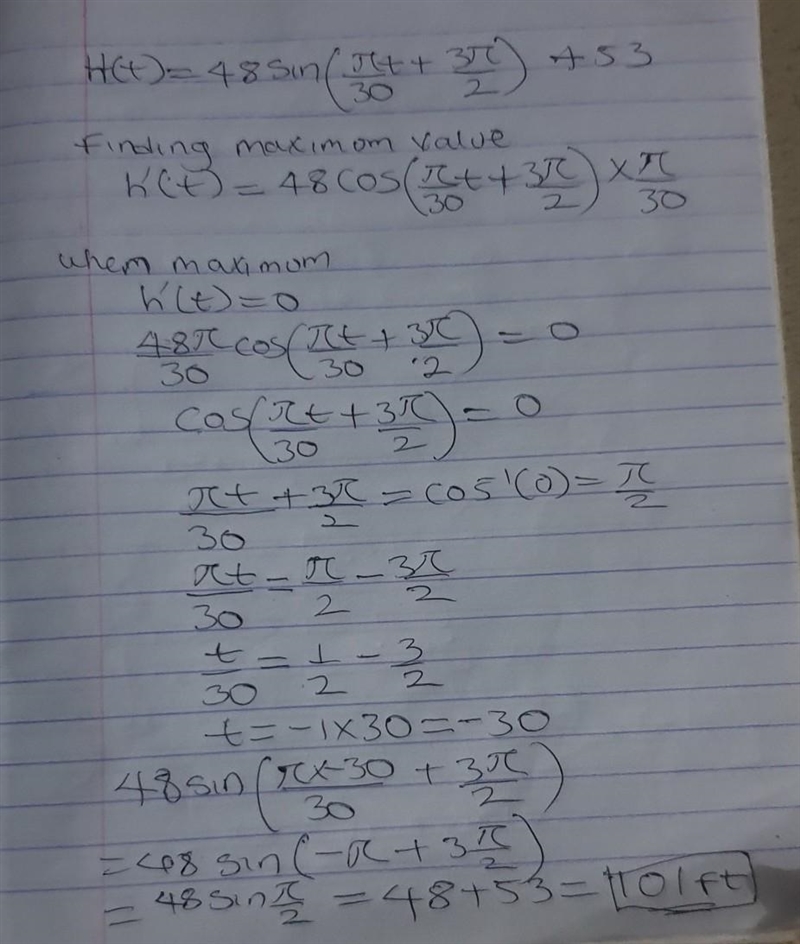 H(t) = 48 sin(πt/30 + 3π/2) + 53
Finding maximom value
h'(t) = 48 cos(π/30 t + 3π/2) × π/30
when maximom
h'(t) = 0
48π/30 cos(πt/30 + 3π/2) = 0
cos(πt/30 + 3π/2) = 0
πt/30 + 3π/2 = cos⁻¹(0) = π/2
πt/30 = π/2 - 3π/2
t/30 = 1/2 - 3/2
t = -1 × 30 = -30
48 sin(π×-30/30 + 3π/2)
= 48 sin(-π + 3π/2)
= 48 sin π/2 = 48 + 53 = 101ft